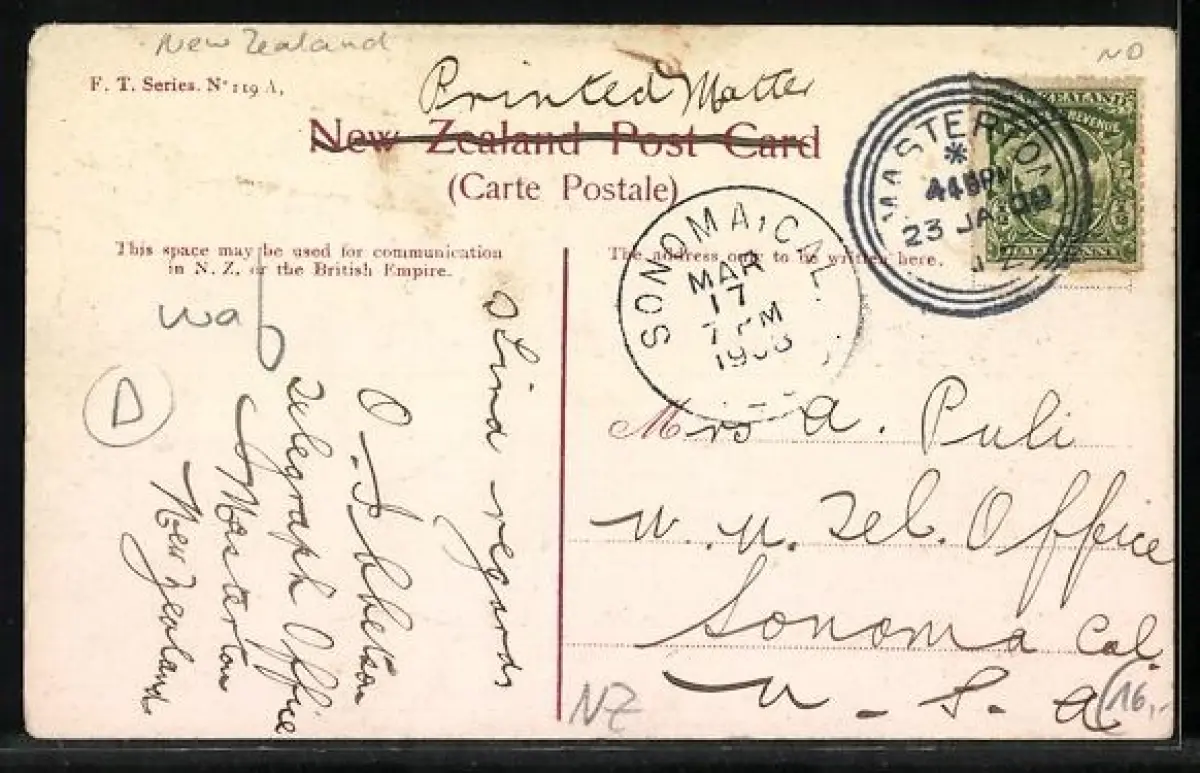 New Zealand
NO
F. T. Series. Nº 119 A,
Printed Matter
New Zealand Post Card
(Carte Postale)
MASTERTON
445PM
23 JA 08
NEW ZEALAND
REVENUE
HALF PENNY
SONOMA, CAL.
MAR
17
7 PM
This space may be used for communication
in N. Z. or the British Empire.
The address only to be written here.
Kind regards
Telegraph Office
Masterton
New Zealand
Mrs A. Puli
W. U. Tel. Office
Sonoma Cal.
U. S. A
NZ
16,-